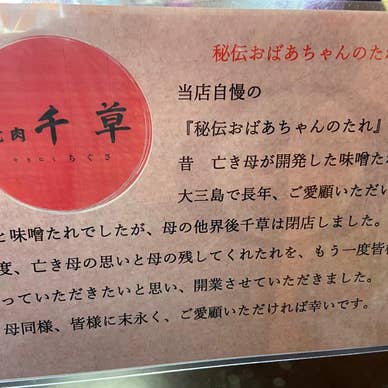 秘伝おばあちゃんのたれ
肉 千草
やきにく ちぐさ
当店自慢の
『秘伝おばあちゃんのたれ』
昔 亡き母が開発した味噌た
大三島で長年、ご愛顧いただい
と味噌たれでしたが、母の他界後千草は閉店しました。
度、亡き母の思いと母の残してくれたれを、もう一度皆様
っていただきたいと思い、開業させていただきました。
母同様、皆様に末永く、ご愛顧いただければ幸いです。